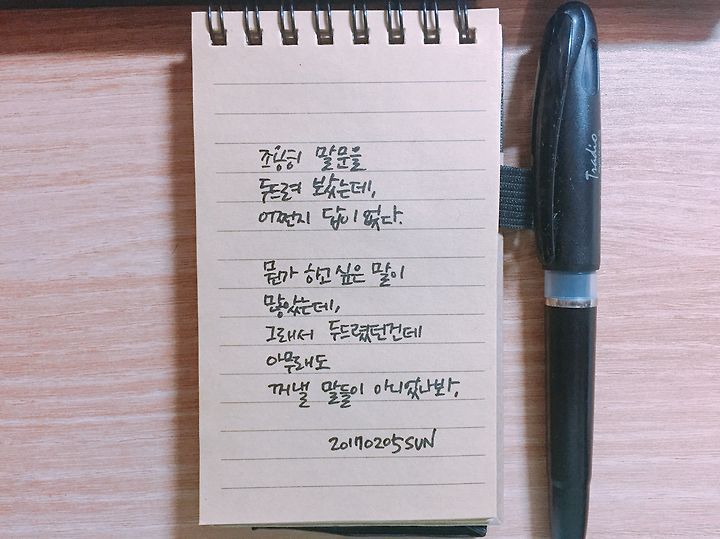 조용히 말문을
두드려 보았는데,
어쩐지 답이 없다.
뭔가 하고 싶은 말이
많았는데,
그래서 두드렸던건데
아무래도
꺼낼 말들이 아니었나봐.
20170205SUN
Tradio